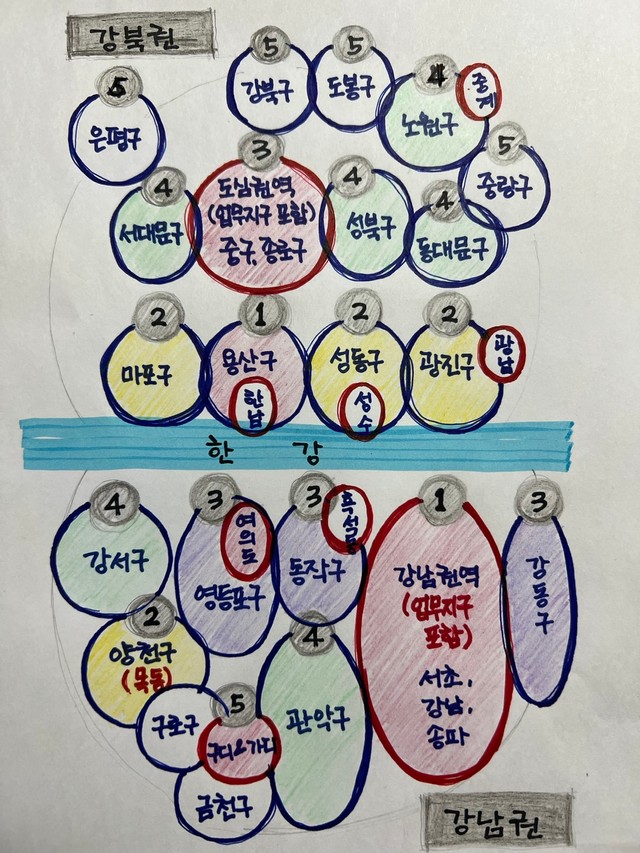 강북권
5
강북구
5
도봉구
4
노원구
중계
5
은평구
5
중랑구
4
서대문구
3
도심권역
(업무지구 포함)
중구, 종로구
4
성북구
4
동대문구
2
마포구
1
용산구
한남
2
성동구
성수
2
광진구
광남
한 강
4
강서구
3
여의도
영등포구
3
흑석동
동작구
1
강남권역
(업무지구
포함)
서초,
강남,
송파
3
강동구
2
양천구
(목동)
구로구
5
구디&가디
금천구
4
관악구
강남권